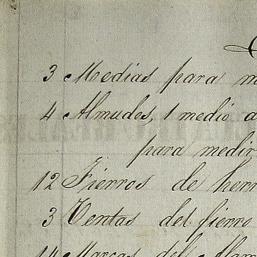 3 Medias para m
4 Almudes, 1 medio a
para medir
12 Fierros de herr
3 Ventas del fierro
14 Marcas del Alam